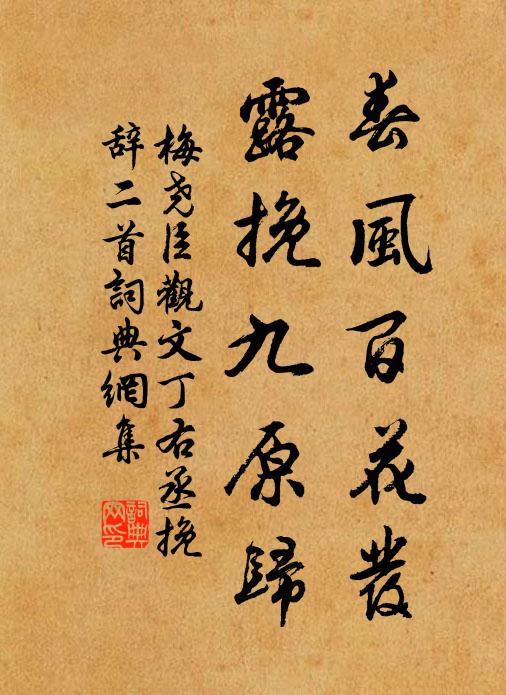 春風百花發
露挽九原歸
梅堯臣觀文丁右丞挽
辞二首詞典網集
詞典
网印